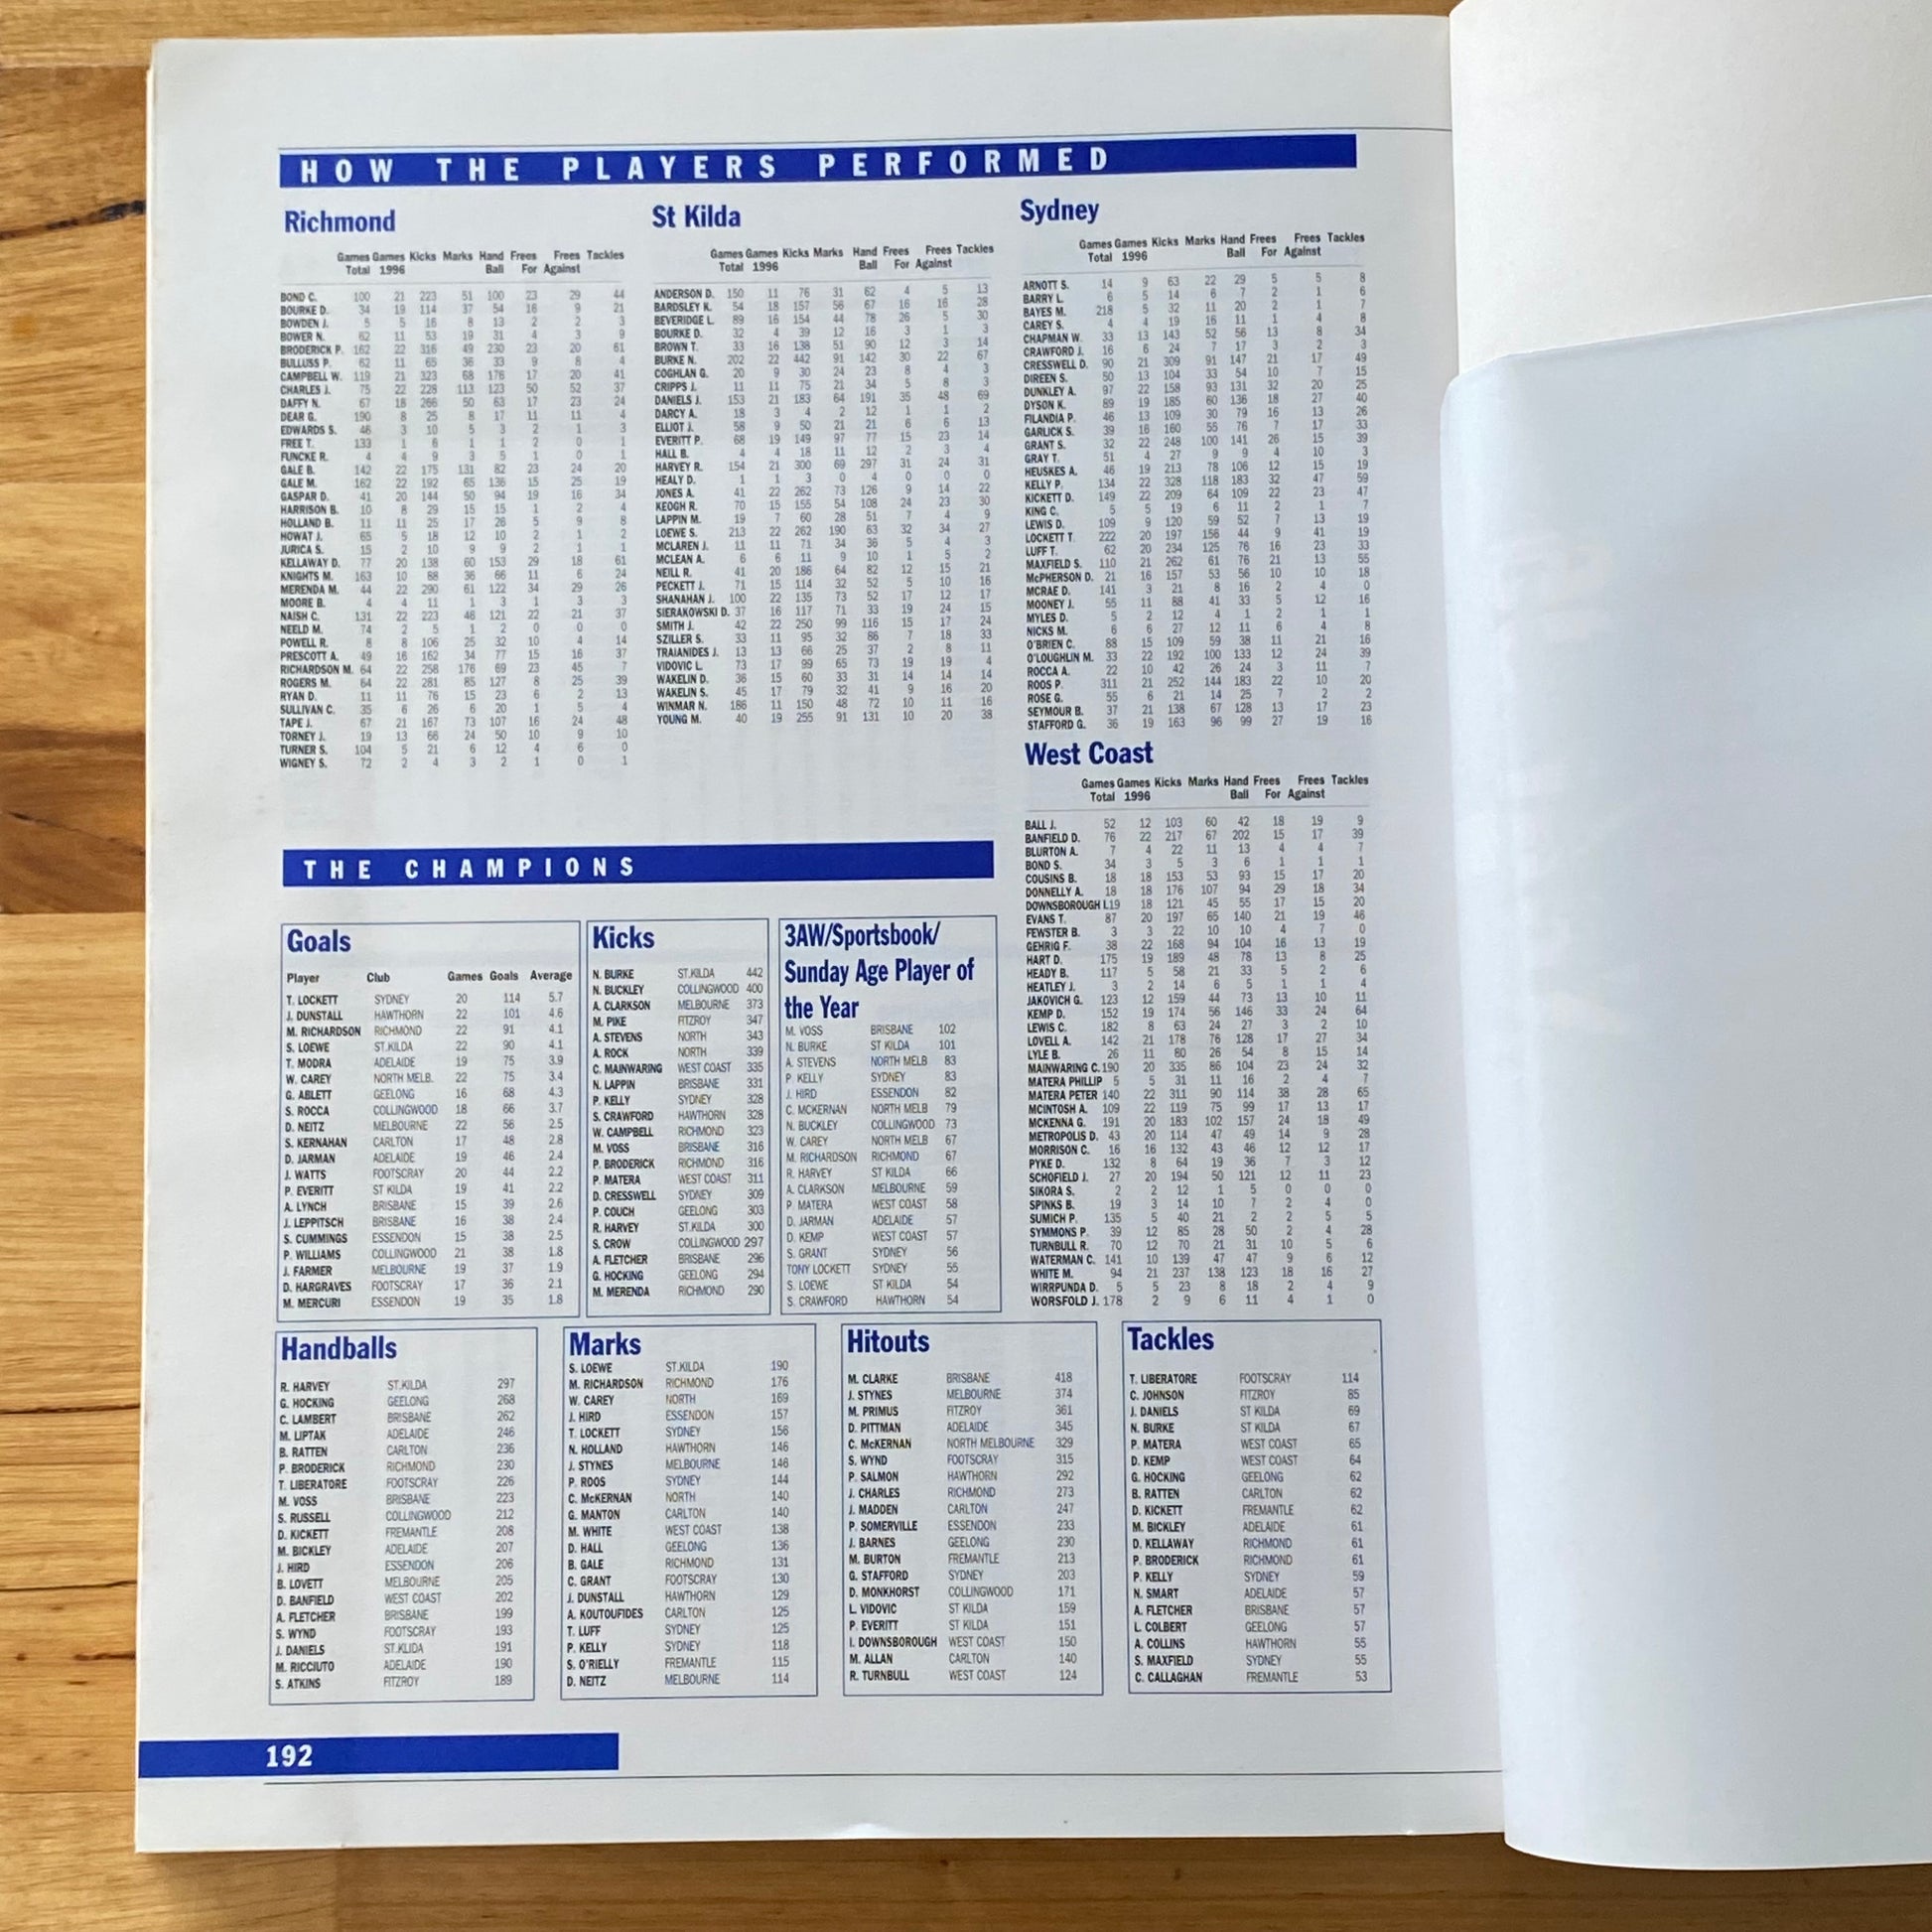 HOW THE PLAYERS PERFORMED
Richmond
Games Games Kicks Marks Hand Frees Frees Tackles
Total 1996 Ball For Against
BOND C. 100 21 223 51 100 23 29 44
BOURKE D. 34 19 114 37 54 16 9 21
BOWDEN J. 5 5 16 8 13 2 2 3
BOWER N. 62 11 53 19 31 4 3 9
BRODERICK P. 162 22 316 49 230 23 20 61
BULLUSS P. 62 11 65 36 33 9 8 4
CAMPBELL W. 119 21 323 68 176 17 20 41
CHARLES J. 75 22 228 113 123 50 52 37
DAFFY N. 67 18 266 50 63 17 23 24
DEAR G. 190 8 25 8 17 11 11 4
EDWARDS S. 46 3 10 5 3 2 1 3
FREE T. 133 1 6 1 1 2 0 1
FUNCKE R. 4 4 9 3 5 1 0 1
GALE B. 142 22 175 131 82 23 24 20
GALE M. 162 22 192 65 136 15 25 19
GASPAR D. 41 20 144 50 94 19 16 34
HARRISON B. 10 8 29 15 15 1 2 4
HOLLAND B. 11 11 25 17 26 5 9 8
HOWAT J. 65 5 18 12 10 2 1 2
JURICA S. 15 2 10 9 9 2 1 1
KELLAWAY D. 77 20 138 60 153 29 18 61
KNIGHTS M. 163 10 88 36 66 11 6 24
MERENDA M. 44 22 290 61 122 34 29 26
MOORE B. 4 4 11 1 3 1 3 3
NAISH C. 131 22 223 46 121 22 21 37
NEELD M. 74 2 5 1 2 0 0 0
POWELL R. 8 8 106 25 32 10 4 14
PRESCOTT A. 49 16 162 34 77 15 16 37
RICHARDSON M. 64 22 258 176 69 23 45 7
ROGERS M. 64 22 281 85 127 8 25 39
RYAN D. 11 11 76 15 23 6 2 13
SULLIVAN C. 35 6 26 6 20 1 5 4
TAPE J. 67 21 167 73 107 16 24 48
TORNEY J. 19 13 66 24 50 10 9 10
TURNER S. 104 5 21 6 12 4 6 0
WIGNEY S. 72 2 4 3 2 1 0 1
St Kilda
Games Games Kicks Marks Hand Frees Frees Tackles
Total 1996 Ball For Against
ANDERSON D. 150 11 76 31 62 4 5 13
BARDSLEY K. 54 18 157 56 67 16 16 28
BEVERIDGE L. 89 16 154 44 78 26 5 30
BOURKE D. 32 4 39 12 16 3 1 3
BROWN T. 33 16 138 51 90 12 3 14
BURKE N. 202 22 442 91 142 30 22 67
COGHLAN G. 20 9 30 24 23 8 4 3
CRIPPS J. 11 11 75 21 34 5 8 3
DANIELS J. 153 21 183 64 191 35 48 69
DARCY A. 18 3 4 2 12 1 1 2
ELLIOT J. 58 9 50 21 21 6 6 13
EVERITT P. 68 19 149 97 77 15 23 14
HALL B. 4 4 18 11 12 2 3 4
HARVEY R. 154 21 300 69 297 31 24 31
HEALY D. 1 1 3 0 4 0 0 0
JONES A. 41 22 262 73 126 9 14 22
KEOGH R. 70 15 155 54 108 24 23 30
LAPPIN M. 19 7 60 28 51 7 4 9
LOEWE S. 213 22 262 190 63 32 34 27
MCLAREN J. 11 11 71 34 36 5 4 3
MCLEAN A. 6 6 11 9 10 1 5 2
NEILL R. 41 20 186 64 82 12 15 21
PECKETT J. 71 15 114 32 52 5 10 16
SHANAHAN J. 100 22 135 73 52 17 12 17
SIERAKOWSKI D. 37 16 117 71 33 19 24 15
SMITH J. 42 22 250 99 116 15 17 24
SZILLER S. 33 11 95 32 86 7 18 33
TRAIANIDES J. 13 13 66 25 37 2 8 11
VIDOVIC L. 73 17 99 65 73 19 19 4
WAKELIN D. 36 15 60 33 31 14 14 14
WAKELIN S. 45 17 79 32 41 9 16 20
WINMAR N. 186 11 150 48 72 10 11 16
YOUNG M. 40 19 255 91 131 10 20 38
Sydney
Games Games Kicks Marks Hand Frees Frees Tackles
Total 1996 Ball For Against
ARNOTT S. 14 9 63 22 29 5 5 8
BARRY L. 6 5 14 6 7 2 1 6
BAYES M. 218 5 32 11 20 2 1 7
CAREY S. 4 4 19 16 11 1 4 8
CHAPMAN W. 33 13 143 52 56 13 8 34
CRAWFORD J. 16 6 24 7 17 3 2 3
CRESSWELL D. 90 21 309 91 147 21 17 49
DIREEN S. 50 13 104 33 54 10 7 15
DUNKLEY A. 97 22 158 93 131 32 20 25
DYSON K. 89 19 185 60 136 18 27 40
FILANDIA P. 46 13 109 30 79 16 13 26
GARLICK S. 39 16 160 55 76 7 17 33
GRANT S. 32 22 248 100 141 26 15 39
GRAY T. 51 4 27 9 9 4 10 3
HEUSKES A. 46 19 213 78 106 12 15 19
KELLY P. 134 22 328 118 183 32 47 59
KICKETT D. 149 22 209 64 109 22 23 47
KING C. 5 5 19 6 11 2 1 7
LEWIS D. 109 9 120 59 52 7 13 19
LOCKETT T. 222 20 197 156 44 9 41 19
LUFF T. 62 20 234 125 76 16 23 33
MAXFIELD S. 110 21 262 61 76 21 13 55
McPHERSON D. 21 16 157 53 56 10 10 18
MCRAE D. 141 3 21 8 16 2 4 0
MOONEY J. 55 11 88 41 33 5 12 16
MYLES D. 5 2 12 4 1 2 1 1
NICKS M. 6 6 27 12 11 6 4 8
O'BRIEN C. 88 15 109 59 38 11 21 16
O'LOUGHLIN M. 33 22 192 100 133 12 24 39
ROCCA A. 22 10 42 26 24 3 11 7
ROOS P. 311 21 252 144 183 22 10 20
ROSE G. 55 6 21 14 25 7 2 2
SEYMOUR B. 37 21 138 67 128 13 17 23
STAFFORD G. 36 19 163 96 99 27 19 16
West Coast
Games Games Kicks Marks Hand Frees Frees Tackles
Total 1996 Ball For Against
BALL J. 52 12 103 60 42 18 19 9
BANFIELD D. 76 22 217 67 202 15 17 39
BLURTON A. 7 4 22 11 13 4 4 7
BOND S. 34 3 5 3 6 1 1 1
COUSINS B. 18 18 153 53 93 15 17 20
DONNELLY A. 18 18 176 107 94 29 18 34
DOWNSBOROUGH I.19 18 121 45 55 17 15 20
EVANS T. 87 20 197 65 140 21 19 46
FEWSTER B. 3 3 22 10 10 4 7 0
GEHRIG F. 38 22 168 94 104 16 13 19
HART D. 175 19 189 48 78 13 8 25
HEADY B. 117 5 58 21 33 5 2 6
HEATLEY J. 3 2 14 6 5 1 1 4
JAKOVICH G. 123 12 159 44 73 13 10 11
KEMP D. 152 19 174 56 146 33 24 64
LEWIS C. 182 8 63 24 27 3 2 10
LOVELL A. 142 21 178 76 128 17 27 34
LYLE B. 26 11 60 26 54 8 15 14
MAINWARING C. 190 20 335 86 104 23 24 32
MATERA PHILLIP 5 5 31 11 16 2 4 7
MATERA PETER 140 22 311 90 114 38 28 65
MCINTOSH A. 109 22 119 75 99 17 13 17
MCKENNA G. 191 20 183 102 157 24 18 49
METROPOLIS D. 43 20 114 47 49 14 9 28
MORRISON C. 16 16 132 43 46 12 12 17
PYKE D. 132 8 64 19 36 7 3 12
SCHOFIELD J. 27 20 194 50 121 12 11 23
SIKORA S. 2 2 12 1 5 0 0 0
SPINKS B. 19 3 14 10 7 2 4 0
SUMICH P. 135 5 40 21 2 2 5 5
SYMMONS P. 39 12 85 28 50 2 4 28
TURNBULL R. 70 12 70 21 31 10 5 6
WATERMAN C. 141 10 139 47 47 9 6 12
WHITE M. 94 21 237 138 123 18 16 27
WIRRPUNDA D. 5 5 23 8 18 2 4 9
WORSFOLD J. 178 2 9 6 11 4 1 0
THE CHAMPIONS
Goals
Player Club Games Goals Average
T. LOCKETT SYDNEY 20 114 5.7
J. DUNSTALL HAWTHORN 22 101 4.6
M. RICHARDSON RICHMOND 22 91 4.1
S. LOEWE ST.KILDA 22 90 4.1
T. MODRA ADELAIDE 19 75 3.9
W. CAREY NORTH MELB. 22 75 3.4
G. ABLETT GEELONG 16 68 4.3
S. ROCCA COLLINGWOOD 18 66 3.7
D. NEITZ MELBOURNE 22 56 2.5
S. KERNAHAN CARLTON 17 48 2.8
D. JARMAN ADELAIDE 19 46 2.4
J. WATTS FOOTSCRAY 20 44 2.2
P. EVERITT ST KILDA 19 41 2.2
A. LYNCH BRISBANE 15 39 2.6
J. LEPPITSCH BRISBANE 16 38 2.4
S. CUMMINGS ESSENDON 15 38 2.5
P. WILLIAMS COLLINGWOOD 21 38 1.8
J. FARMER MELBOURNE 19 37 1.9
D. HARGRAVES FOOTSCRAY 17 36 2.1
M. MERCURI ESSENDON 19 35 1.8
Kicks
N. BURKE ST.KILDA 442
N. BUCKLEY COLLINGWOOD 400
A. CLARKSON MELBOURNE 373
M. PIKE FITZROY 347
A. STEVENS NORTH 343
A. ROCK NORTH 339
C. MAINWARING WEST COAST 335
N. LAPPIN BRISBANE 331
P. KELLY SYDNEY 328
S. CRAWFORD HAWTHORN 328
W. CAMPBELL RICHMOND 323
M. VOSS BRISBANE 316
P. BRODERICK RICHMOND 316
P. MATERA WEST COAST 311
D. CRESSWELL SYDNEY 309
P. COUCH GEELONG 303
R. HARVEY ST.KILDA 300
S. CROW COLLINGWOOD 297
A. FLETCHER BRISBANE 296
G. HOCKING GEELONG 294
M. MERENDA RICHMOND 290
3AW/Sportsbook/
Sunday Age Player of
the Year
M. VOSS BRISBANE 102
N. BURKE ST KILDA 101
A. STEVENS NORTH MELB 83
P. KELLY SYDNEY 83
J. HIRD ESSENDON 82
C. MCKERNAN NORTH MELB 79
N. BUCKLEY COLLINGWOOD 73
W. CAREY NORTH MELB 67
M. RICHARDSON RICHMOND 67
R. HARVEY ST KILDA 66
A. CLARKSON MELBOURNE 59
P. MATERA WEST COAST 58
D. JARMAN ADELAIDE 57
D. KEMP WEST COAST 57
S. GRANT SYDNEY 56
TONY LOCKETT SYDNEY 55
S. LOEWE ST KILDA 54
S. CRAWFORD HAWTHORN 54
Handballs
R. HARVEY ST.KILDA 297
G. HOCKING GEELONG 268
C. LAMBERT BRISBANE 262
M. LIPTAK ADELAIDE 246
B. RATTEN CARLTON 236
P. BRODERICK RICHMOND 230
T. LIBERATORE FOOTSCRAY 226
M. VOSS BRISBANE 223
S. RUSSELL COLLINGWOOD 212
D. KICKETT FREMANTLE 208
M. BICKLEY ADELAIDE 207
J. HIRD ESSENDON 206
B. LOVETT MELBOURNE 205
D. BANFIELD WEST COAST 202
A. FLETCHER BRISBANE 199
S. WYND FOOTSCRAY 193
J. DANIELS ST.KLIDA 191
M. RICCIUTO ADELAIDE 190
S. ATKINS FITZROY 189
Marks
S. LOEWE ST.KILDA 190
M. RICHARDSON RICHMOND 176
W. CAREY NORTH 169
J. HIRD ESSENDON 157
T. LOCKETT SYDNEY 156
N. HOLLAND HAWTHORN 146
J. STYNES MELBOURNE 146
P. ROOS SYDNEY 144
C. McKERNAN NORTH 140
G. MANTON CARLTON 140
M. WHITE WEST COAST 138
D. HALL GEELONG 136
B. GALE RICHMOND 131
C. GRANT FOOTSCRAY 130
J. DUNSTALL HAWTHORN 129
A. KOUTOUFIDES CARLTON 125
T. LUFF SYDNEY 125
P. KELLY SYDNEY 118
S. O'RIELLY FREMANTLE 115
D. NEITZ MELBOURNE 114
Hitouts
M. CLARKE BRISBANE 418
J. STYNES MELBOURNE 374
M. PRIMUS FITZROY 361
D. PITTMAN ADELAIDE 345
C. McKERNAN NORTH MELBOURNE 329
S. WYND FOOTSCRAY 315
P. SALMON HAWTHORN 292
J. CHARLES RICHMOND 273
J. MADDEN CARLTON 247
P. SOMERVILLE ESSENDON 233
J. BARNES GEELONG 230
M. BURTON FREMANTLE 213
G. STAFFORD SYDNEY 203
D. MONKHORST COLLINGWOOD 171
L. VIDOVIC ST KILDA 159
P. EVERITT ST KILDA 151
I. DOWNSBOROUGH WEST COAST 150
M. ALLAN CARLTON 140
R. TURNBULL WEST COAST 124
Tackles
T. LIBERATORE FOOTSCRAY 114
C. JOHNSON FITZROY 85
J. DANIELS ST KILDA 69
N. BURKE ST KILDA 67
P. MATERA WEST COAST 65
D. KEMP WEST COAST 64
G. HOCKING GEELONG 62
B. RATTEN CARLTON 62
D. KICKETT FREMANTLE 62
M. BICKLEY ADELAIDE 61
D. KELLAWAY RICHMOND 61
P. BRODERICK RICHMOND 61
P. KELLY SYDNEY 59
N. SMART ADELAIDE 57
A. FLETCHER BRISBANE 57
L. COLBERT GEELONG 57
A. COLLINS HAWTHORN 55
S. MAXFIELD SYDNEY 55
C. CALLAGHAN FREMANTLE 53
192